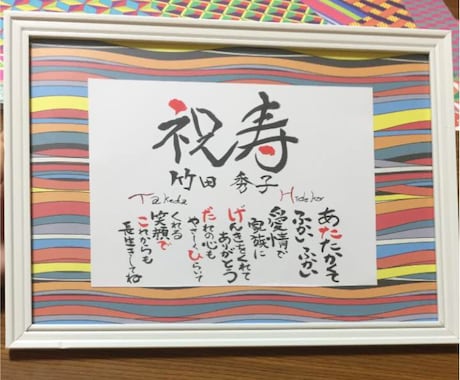 祝寿
竹田 秀子
Takeda Hideko
あたたかくて
ふかい、ふかい
愛情で
家族に
げんきをくれて
ありがとう
だれの心も
やさしくひらいて
くれる
笑顔で
これからも
長生きしてね